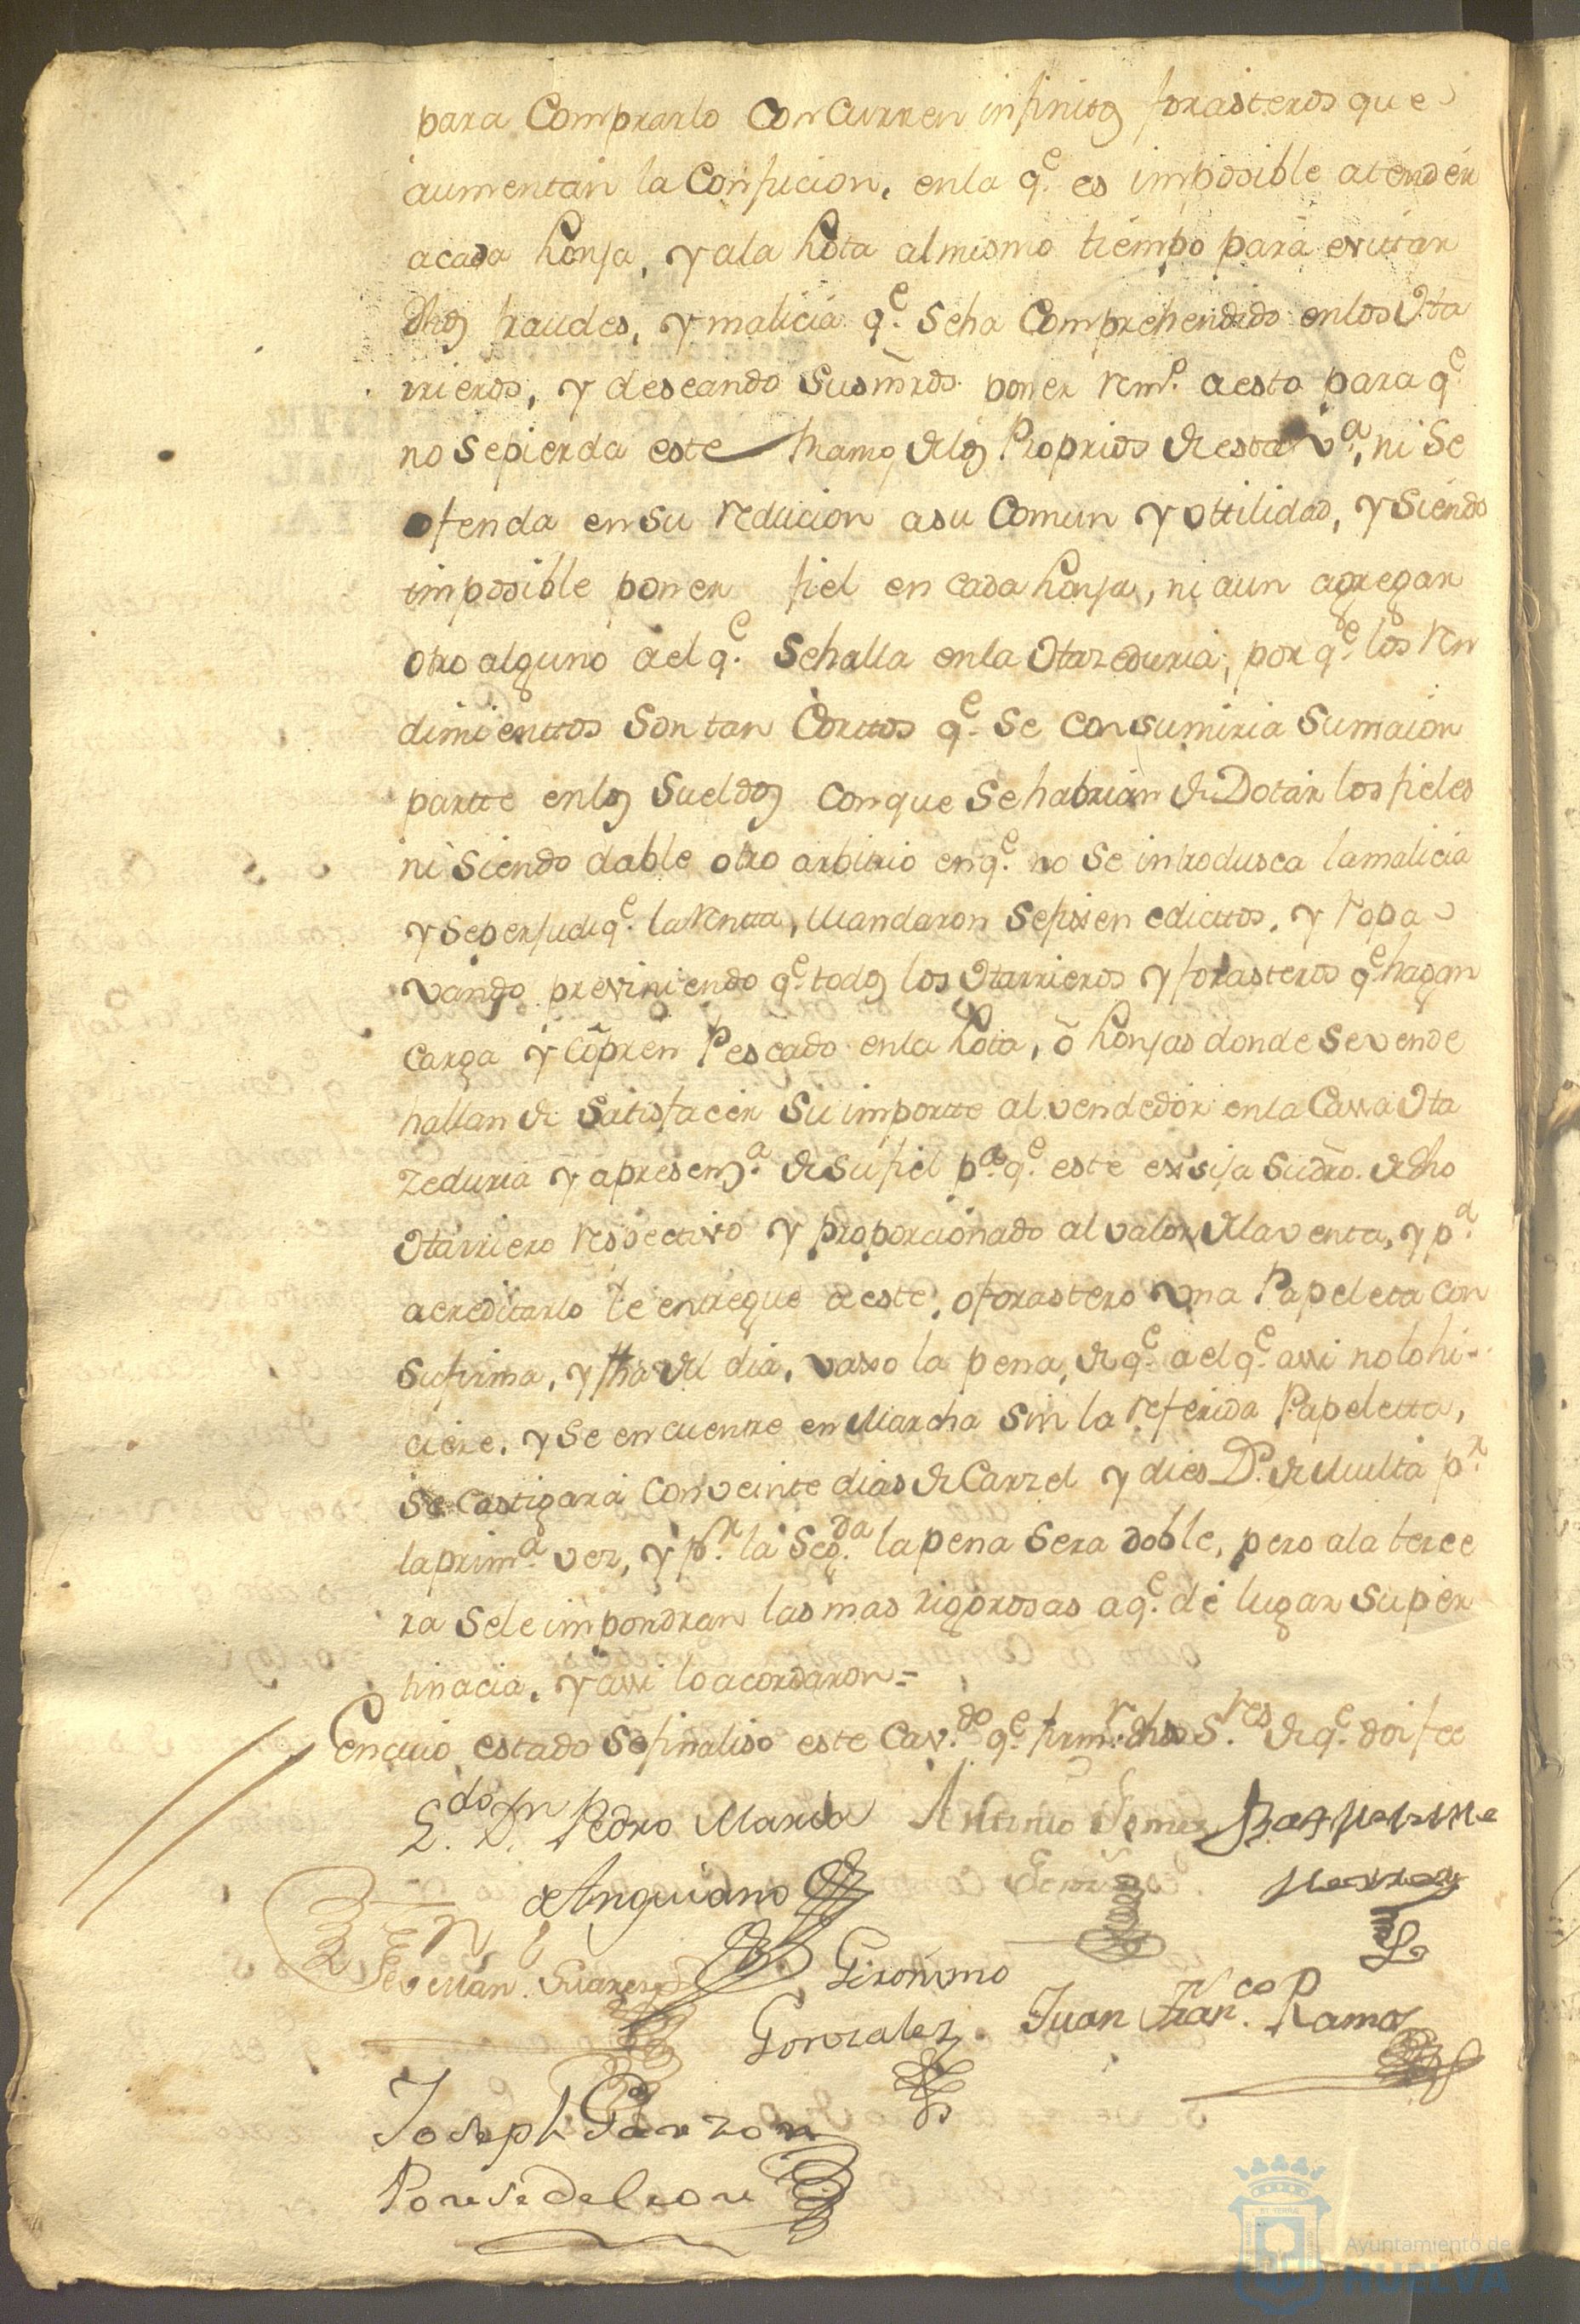 para Comprarlo Concurren infinitos forasteros que
aumentan la Confucion, enla qe. es imposible atender
acada Lonja, y ala Lota almismo tiempo para evittar
dhos fraudes, y malicia qe. seha Comprehendido enlos Ha
rrieros, y deseando susmrds. poner remo. aesto para qe.
no sepierda este Ramo delos Proprios de esta Va., ni se
ofenda en su reducion asu Comun y vttilidad, y siendo
imposible poner fiel en cada Lonja, ni aun agregar
otro alguno ael qe. sehalla enla Hazeduria, por qe. los ren
dimienttos son tan Corttos qe. se consumiria sumaior
partte enlos sueldos conque sehabrian de Dotar los fieles
ni siendo dable otro arbitrio enqe. no se introdusca lamalicia
y seperjudiqe. la Rentta, Mandaron sefixen edicttos, y ropa
vando previniendo qe. todos los Harrieros y forasteros qe. hagan
carga y cõpren Pescado enla Lota, õ Lonjas donde sevende
hallan de satisfacer su importte al vendedor enla Cassa Ha
zeduria y apresema. de su fiel pa. qe. este exsija sudro. de dho
Harriero respectivo y proporcionado al valor dela venta, y pa.
acreditarlo le entregue aeste, oforastero vna Papeleta con
sufirma, y fha del dia, vaxo la pena, de qe. ael qe. assi nolohi-
ciere, y se encuentre en Marcha sin la referida Papeletta,
se castigara con veinte dias de Carzel y dies Ds. de Multa pr.
laprima. vez, y pr. la segda. lapena sera doble, pero ala terce
ra sele impondran las mas rigorosas a qe. dé lugar su per
tinacia, y assi lo acordaron=
En cuio estado sefinaliso este Cavdo. qe. firmn. dhos Sres. de qe. doi fee
Ldo. Dn Pedro Maria
de Anguiano
Antonio
Geronimo
Gonzalez
Juan Franco. Ramos
Joseph Garzon
Ponse de Leon
Ayuntamiento de
HUELVA